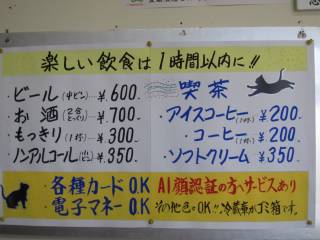 楽しい飲食は1時間以内に!!
ビール(中ビン)…¥600
お酒(2合とっくり)…¥700
もっきり(1杯)…¥300
ノンアルコール…¥350
喫茶
アイスコーヒー(1杯)¥200
コーヒー(1杯)¥200
ソフトクリーム ¥350
各種カードO.K
電子マネーO.K
AI顔認証の方へサービスあり
その他色々OK!!